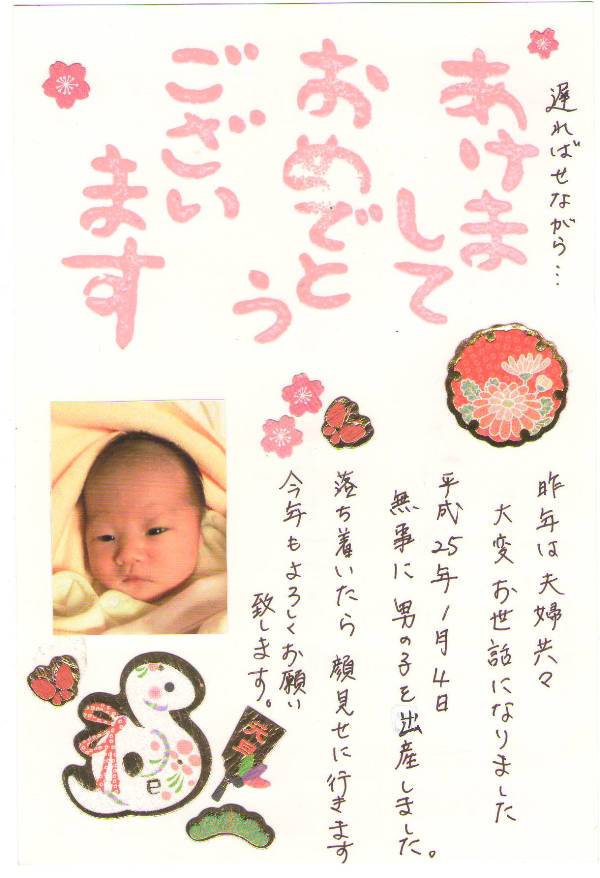 遅ればせながら…
あけま
して
おめでと
う
ござい
ます
昨年は夫婦共々
大変お世話になりました
平成25年1月4日
無事に男の子を出産しました。
落ち着いたら顔見せに行きます
今年もよろしくお願い
致します。